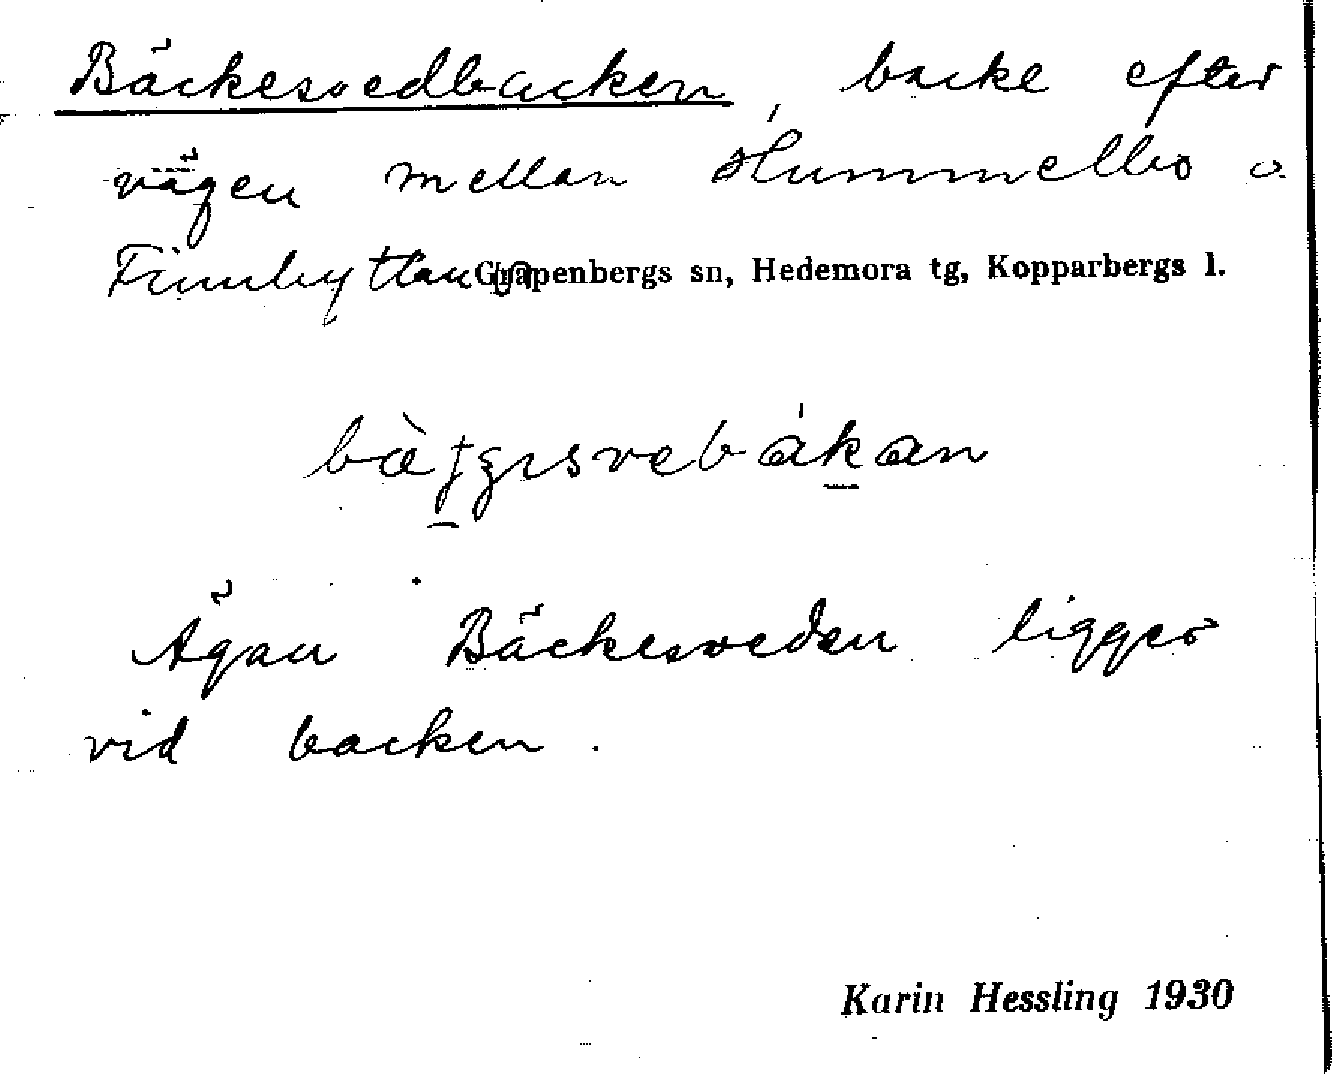 Bäckesvedbacken, backe efter
vägen mellan Hummelbo o.
Finnhyttan Garpenbergs sn, Hedemora tg, Kopparbergs l.
Ägan Bäckesveden ligger
vid backen.
Karin Hessling 1930